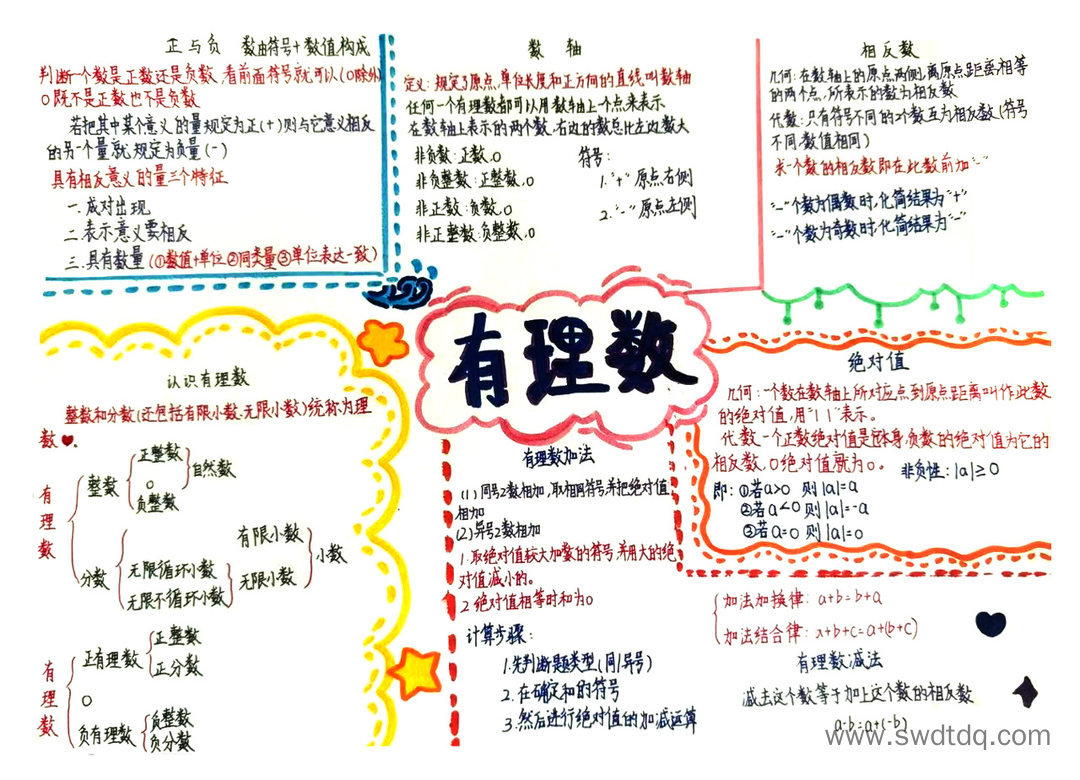 正与负 数由符号+数值构成
判断一个数是正数还是负数,看前面符号就可以(0除外)
0既不是正数也不是负数
若把其中某个意义的量规定为正(+)则与它意义相反
的另一个量就规定为负量(-)
具有相反意义的量三个特征
一.成对出现
二.表示意义要相反
三.具有数量(①数值+单位②同类量③单位表达一致)
数轴
定义:规定了原点,单位长度和正方向的直线叫数轴
任何一个有理数都可以用数轴上一个点来表示
在数轴上表示的两个数,右边的数总比左边数大
非负数:正数,0
非负整数:正整数,0
非正数:负数,0
非正整数:负整数,0
符号:
1."+"原点右侧
2."-"原点左侧
相反数
几何:在数轴上的原点两侧,离原点距离相等
的两个点,所表示的数为相反数
代数:只有符号不同的2个数互为相反数(符号
不同,数值相同)
求一个数的相反数即在此数前加"-"
"-"个数为偶数时,化简结果为"+"
"-"个数为奇数时,化简结果为"-"
有理数
认识有理数
整数和分数(还包括有限小数,无限小数)统称为理
数
有理数
整数
正整数
0
负整数
自然数
分数
有限小数
无限循环小数
无限不循环小数
无限小数
小数
有理数
正有理数
正整数
正分数
0
负有理数
负整数
负分数
有理数加法
(1)同号2数相加,取相同符号并把绝对值
相加
(2)异号2数相加
1.取绝对值较大加数的符号,并用大的绝
对值减小的。
2.绝对值相等时和为0
计算步骤:
1.先判断题类型(同/异号)
2.在确定和的符号
3.然后进行绝对值的加减运算
绝对值
几何:一个数在数轴上所对应点到原点距离叫作此数
的绝对值,用"| |"表示。
代数:一个正数绝对值是本身,负数的绝对值为它的
相反数,0绝对值就为0。 非负性:|a|≥0
即:①若a>0 则|a|=a
②若a<0 则|a|=-a
③若a=0 则|a|=0
加法加换律:a+b=b+a
加法结合律:a+b+c=a+(b+c)
有理数减法
减去这个数等于加上这个数的相反数
a-b=a+(-b)
www.swdtdq.com